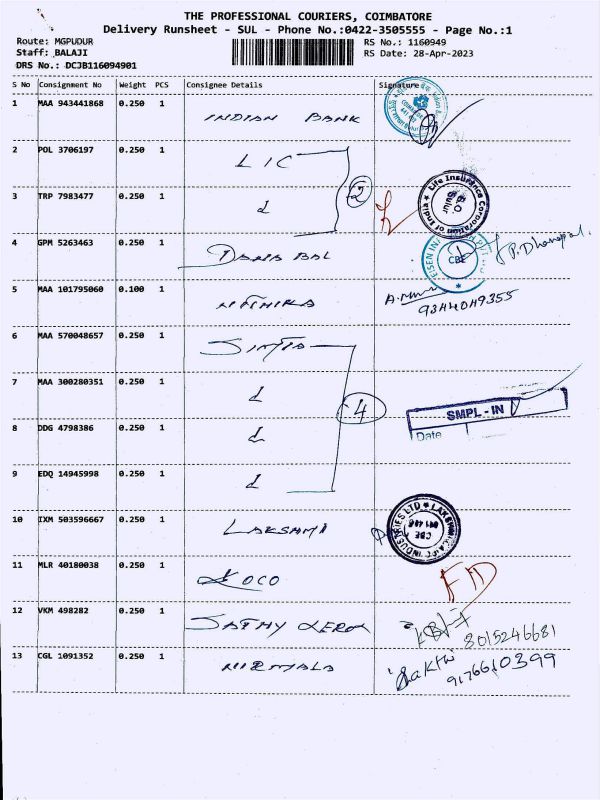 THE PROFESSIONAL COURIERS, COIMBATORE
Delivery Runsheet - SUL - Phone No.:0422-3505555 - Page No.:1
Route: MGPUDUR
RS No.: 1160949
Staff: BALAJI
RS Date: 28-Apr-2023
DRS No.: DCJB116094901
S No Consignment No Weight PCS Consignee Details Signature
1 MAA 943441868 0.250 1 INDIAN BANK
2 POL 3706197 0.250 1 LIC
2
3 TRP 7983477 0.250 1
Life Insurance Corporation of India
B.O. Sulur
4 GPM 5263463 0.250 1 P. Dhanapal.
CBE
5 MAA 101795060 0.100 1
9344049355
6 MAA 570048657 0.250 1
7 MAA 300280351 0.250 1
4
SMPL - IN
Date
8 DDG 4798386 0.250 1
9 EDQ 14945998 0.250 1
10 IXM 503596667 0.250 1 LAKSHMI
CBE
11 MLR 40180038 0.250 1 LOCO
12 VKM 498282 0.250 1
8015246681
13 CGL 1091352 0.250 1 NIRMALA Sakthi
9176610399